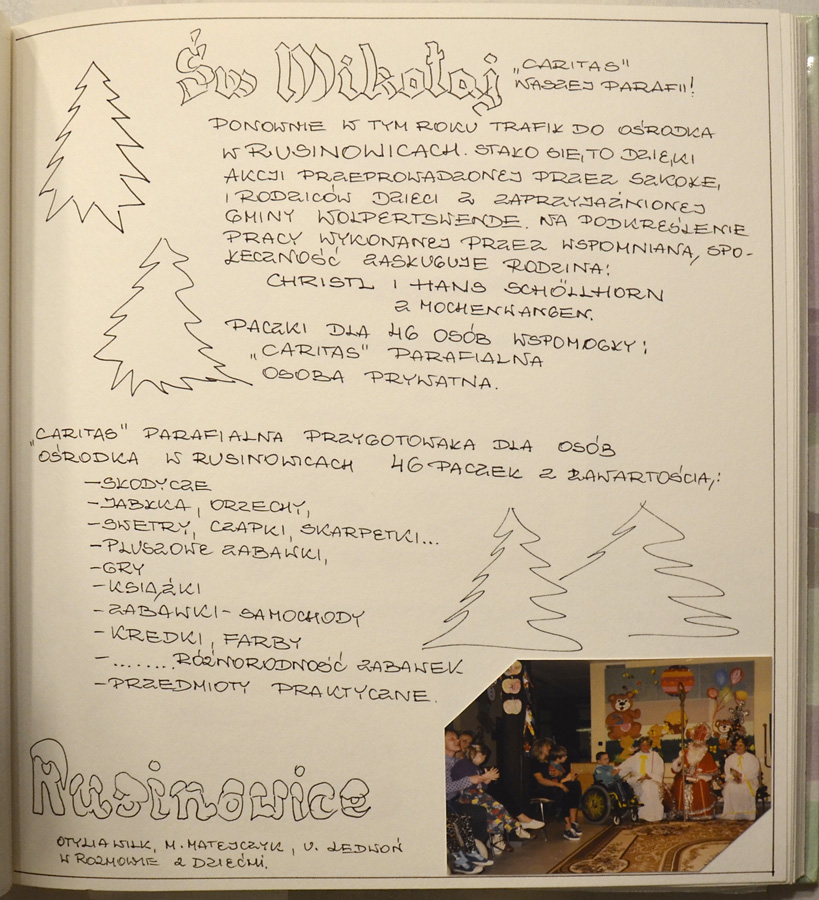 Św Mikołaj
„CARITAS"
NASZEJ PARAFII!
PONOWNIE W TYM ROKU TRAFIŁ DO OŚRODKA
W RUSINOWICACH. STAŁO SIĘ TO DZIĘKI
AKCJI PRZEPROWADZONEJ PRZEZ SZKOŁĘ,
I RODZICÓW DZIECI Z ZAPRZYJAŹNIONEJ
GMINY WOLPERTSWENDE. NA PODKREŚLENIE
PRACY WYKONANEJ PRZEZ WSPOMNIANĄ SPO-
ŁECZNOŚĆ ZASŁUGUJE RODZINA:
CHRISTL I HANS SCHÖLLHORN
Z MOCHENWANGEN.
PACZKI DLA 46 OSÓB WSPOMOGŁY:
„CARITAS" PARAFIALNA
OSOBA PRYWATNA.
„CARITAS" PARAFIALNA PRZYGOTOWAŁA DLA OSÓB
OŚRODKA W RUSINOWICACH 46 PACZEK Z ZAWARTOŚCIĄ:
-SŁODYCZE
-JABŁKA, ORZECHY,
-SWETRY, CZAPKI, SKARPETKI...
-PLUSZOWE ZABAWKI,
-GRY
-KSIĄŻKI
-ZABAWKI- SAMOCHODY
-KREDKI, FARBY
-........RÓŻNORODNOŚĆ ZABAWEK
-PRZEDMIOTY PRAKTYCZNE.
Rusinowice
OTYLIA WILK, M. MATEJCZYK, U. LEDWOŃ
W ROZMOWIE Z DZIEĆMI.